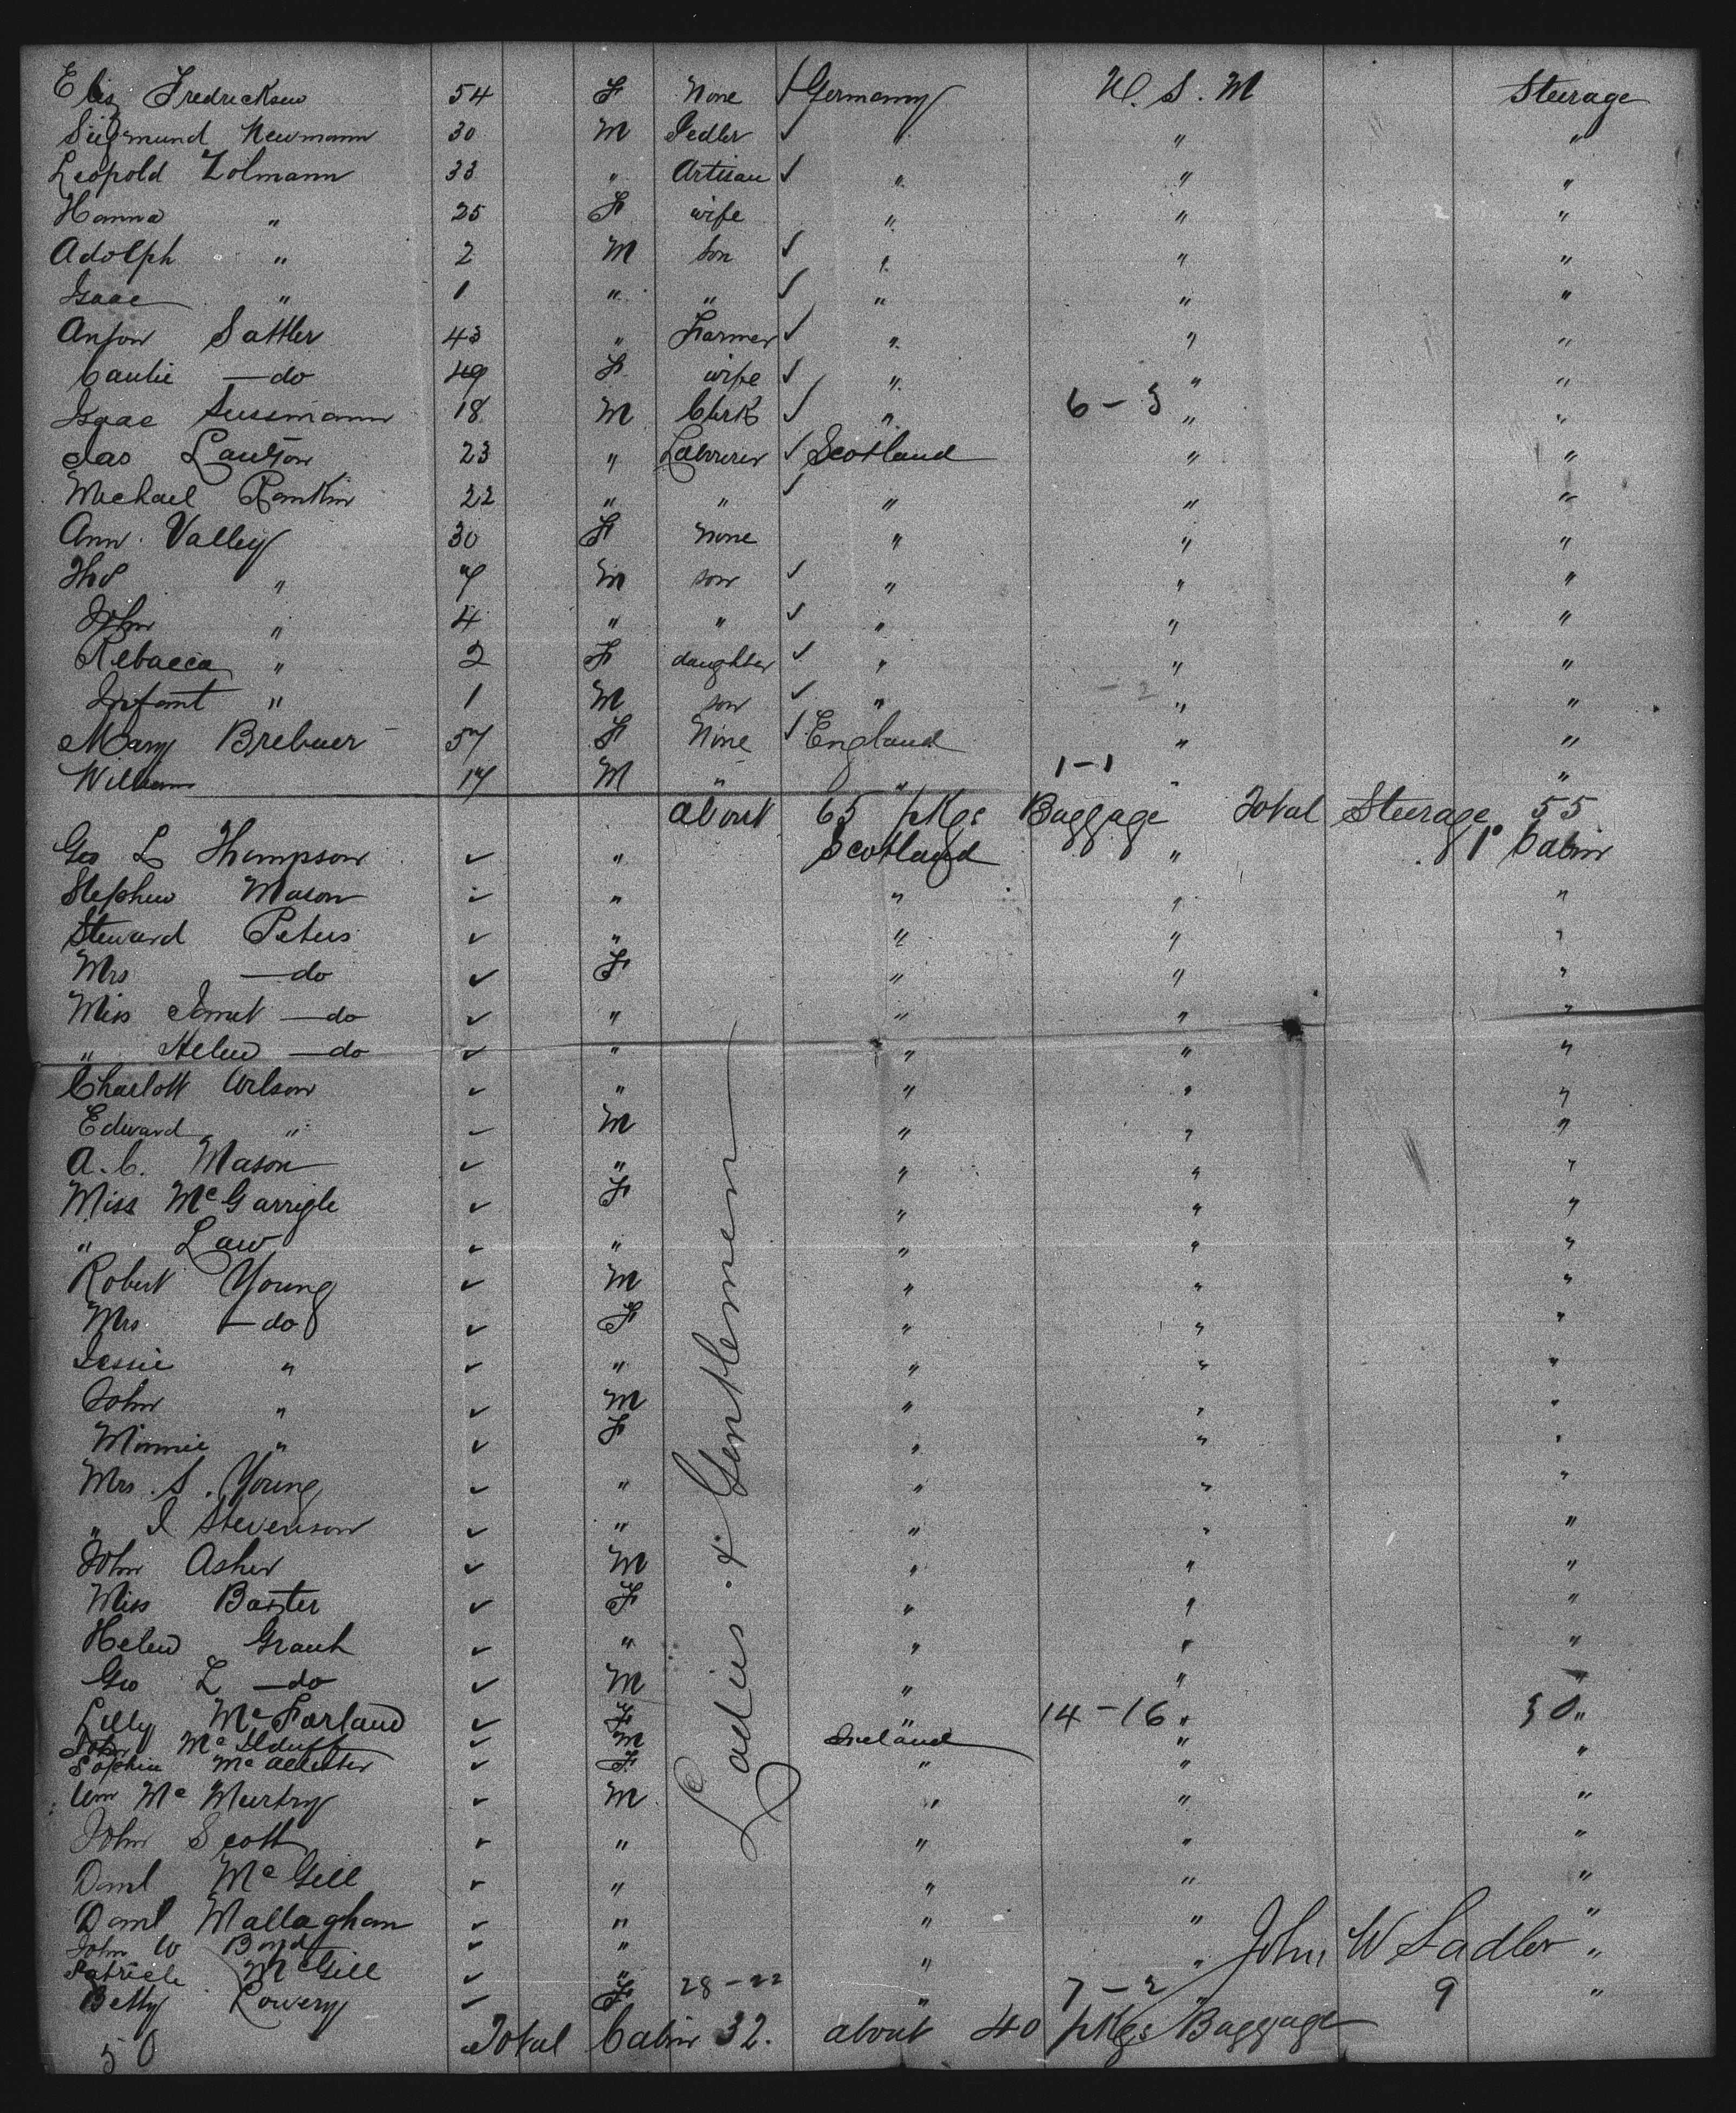 Elis Fredricksen 54 F None ✓ Germany U. S. M Steerage
Siegmund Newmann 30 M Pedler ✓ " " "
Leopold Zolmann 33 " Artisan ✓ " " "
Hanna " 25 F wife " " "
Adolph " 2 M son ✓ " " "
Isaac " 1 " " ✓ " " "
Anton Sattler 43 " Farmer ✓ " " "
— do 49 F wife ✓ " "  "
Isaac Sussmann 18 M Clerk ✓ " 6 - 3 " "
Jas Lawson 23 " Labourer ✓ Scotland " "
Michael Rankin 22 " " ✓ " " "
Ann Valley 30 F None " " "
Thos " 7 M son ✓ " " "
John " 4 " " ✓ " " "
Rebacca " 2 F daughter ✓ " " "
Infant " 1 M son ✓ " - 2 " "
Mary Brebner 57 F None ✓ England " "
William 17 M " " 1 - 1 " "
about 65 pKgs Baggage Total Steerage 55
Geo L Thompson ✓ " Scotland " 1° Cabin
Stephen Mason ✓ " " " "
Steward Peters ✓ " " " "
Mrs — do ✓ F " " "
Miss Janet — do ✓ " " " "
" Helen — do ✓ " " " "
Charlott Wilson ✓ " " " "
Edward " ✓ M " " "
A. C. Mason ✓ " " " "
Miss McGarrigle ✓ F " " "
" Law ✓ " " " "
Robert Young ✓ M " " "
Mrs — do ✓ F " " "
Jessie " ✓ " " " "
John " ✓ M " " "
Minnie " ✓ F " " "
Mrs. S. Young ✓ " " " "
" J Stevenson ✓ " " " "
John Asher ✓ M " " "
Miss Baxter ✓ F " " "
Helen Grant ✓ " " " "
Geo L — do ✓ M " " "
Lilly McFarland ✓ F " 14 - 16 " 50 "
John McIlduff ✓ M Ireland " "
Sophia McAllister ✓ F " " "
Wm McMurtry ✓ M " " "
John Scott ✓ " " " "
Danl McGill ✓ " " " "
Danl Mallaghan ✓ " " " "
John W Boyd ✓ "
Patrick McGill ✓ " " " John W Sadler "
Betty Lowery ✓ F 28 - 22 " 7 - 2 " 9 "
Ladies & Gentlemen
50 Total Cabin 32. about 40 pKgs Baggage